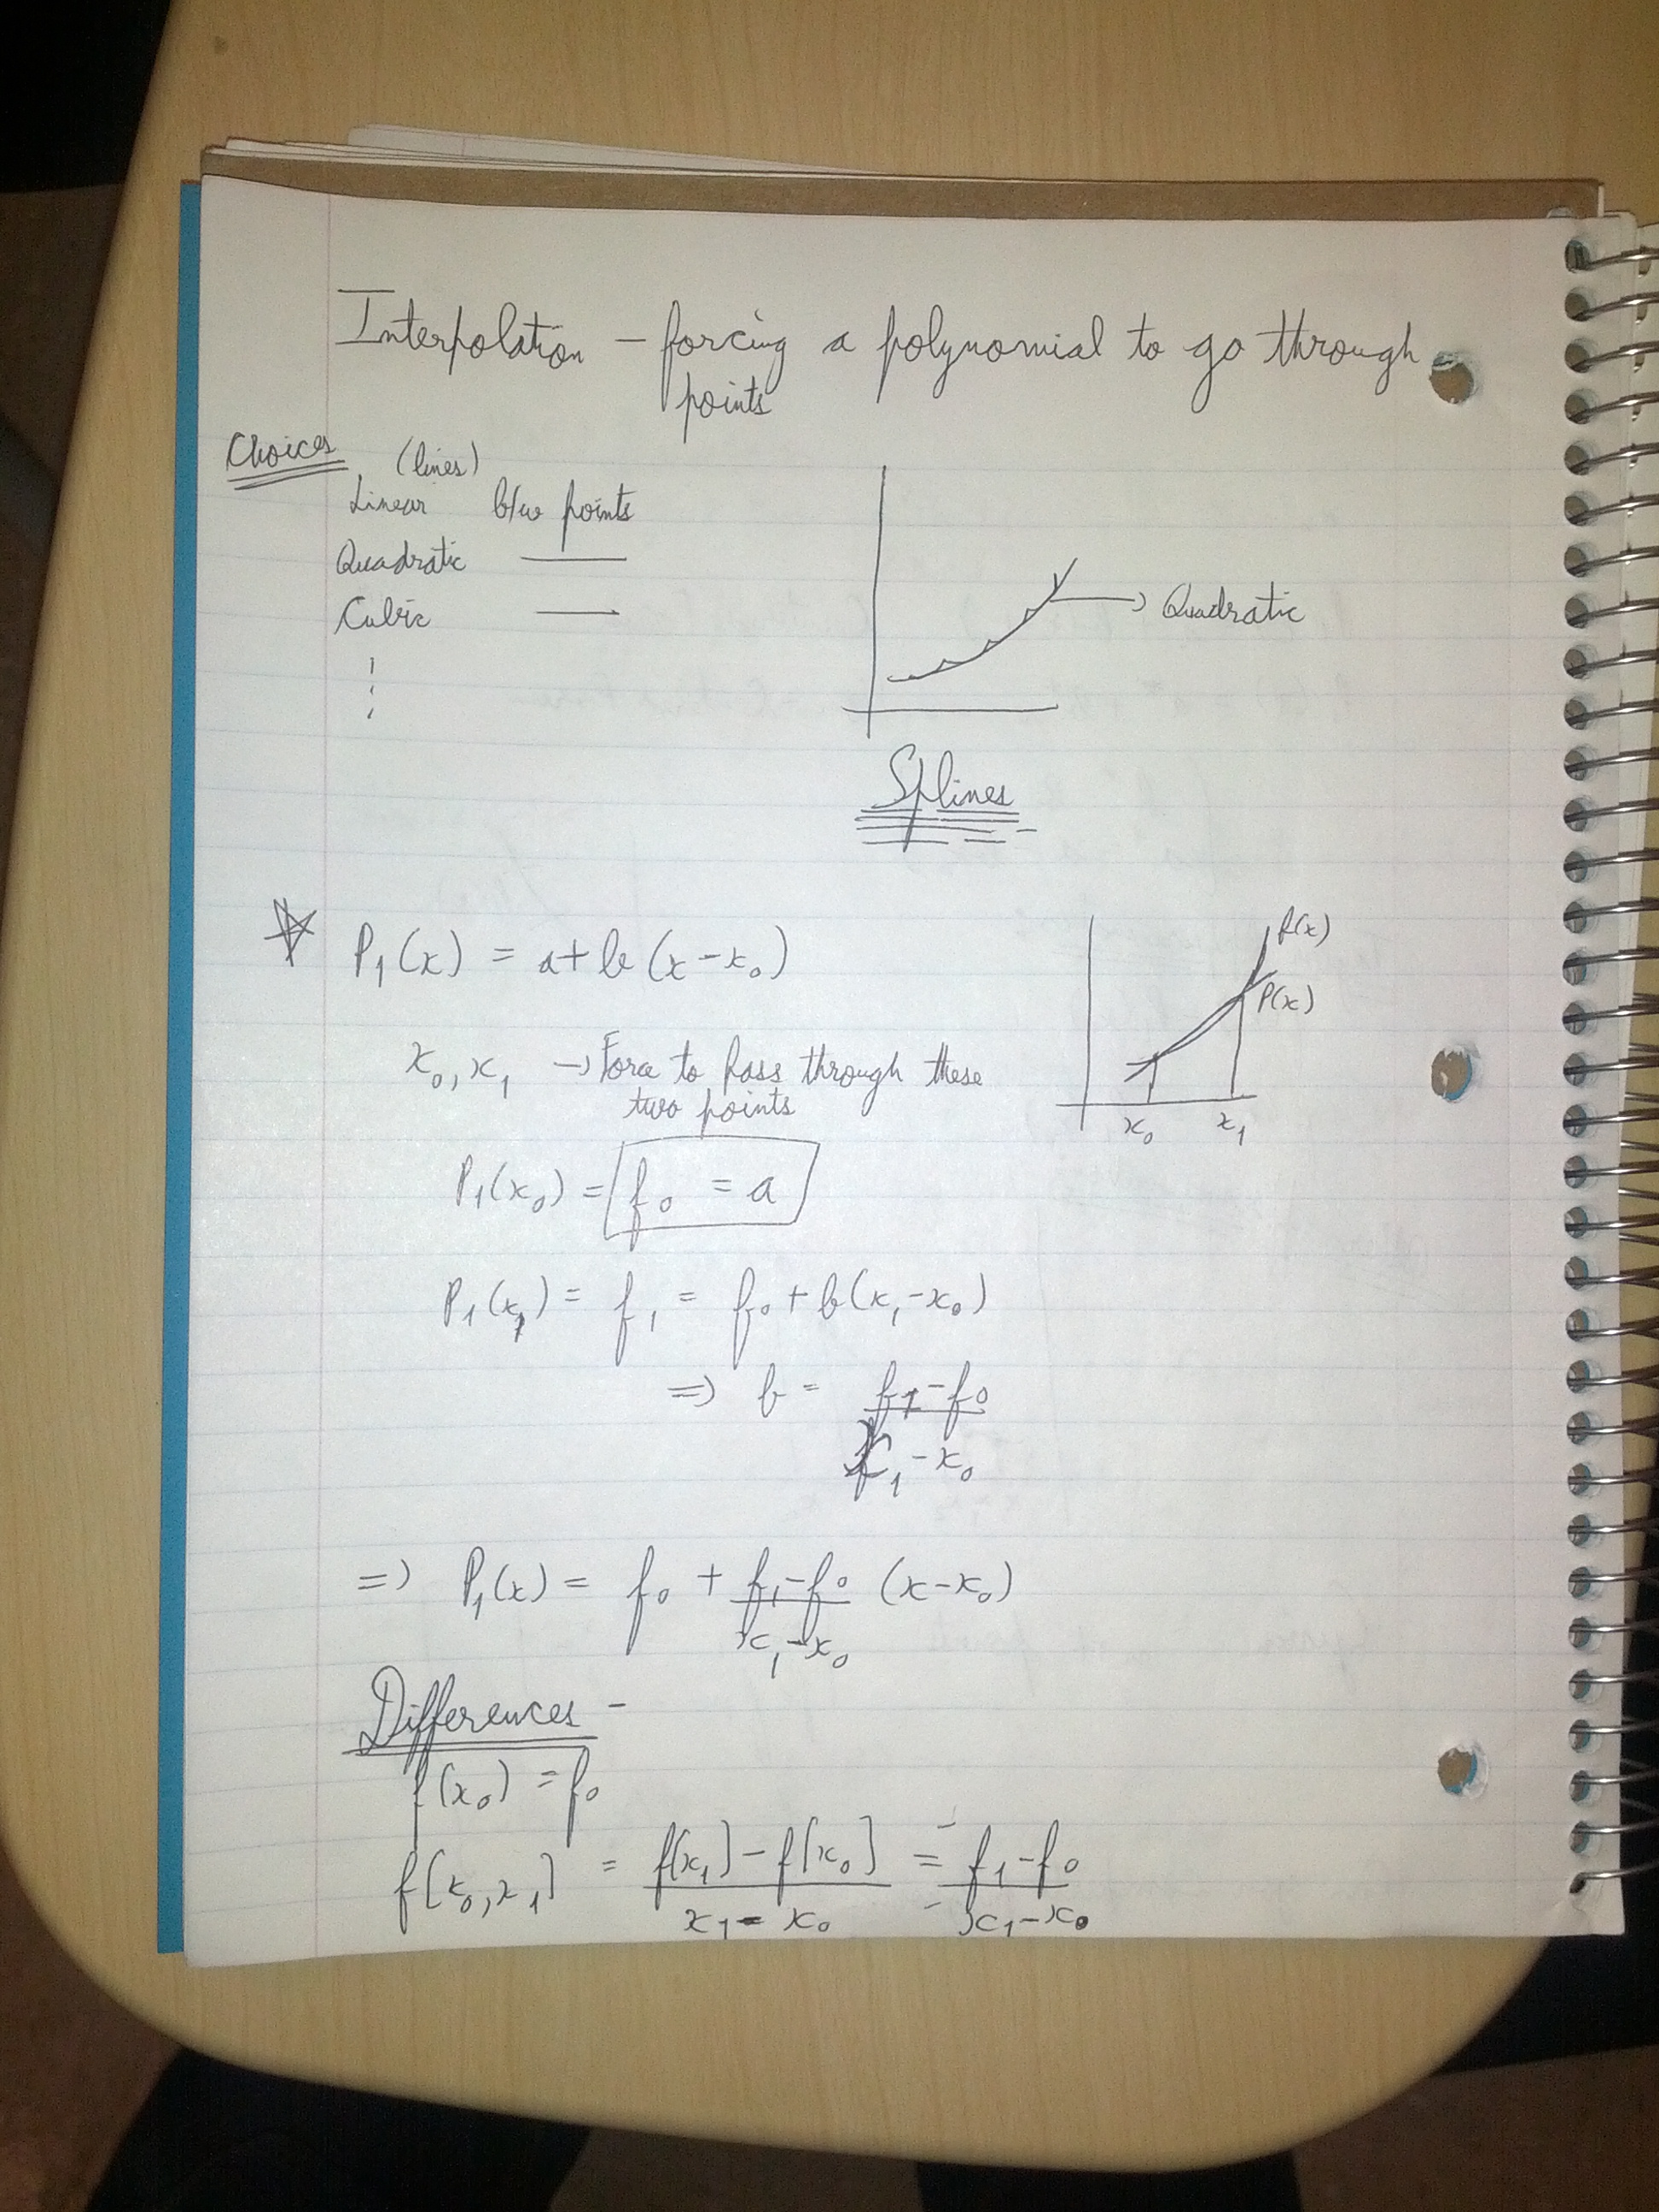 Interpolation – forcing a polynomial to go through
points
Choices
(lines)
Linear b/w points
Quadratic ——
Cubic ——
⋮
→ Quadratic
Splines
☆ P₁(x) = a+b(x-x₀)
f(x)
P(x)
x₀ x₁
x₀, x₁ → Force to pass through these
two points
P₁(x₀) = f₀ = a
P₁(x₁) = f₁ = f₀ + b(x₁-x₀)
⇒ b = (f₁-f₀)/(x₁-x₀)
⇒ P₁(x) = f₀ + (f₁-f₀)/(x₁-x₀) (x-x₀)
Differences –
f(x₀) = f₀
f[x₀,x₁] = (f[x₁]-f[x₀])/(x₁-x₀) = (f₁-f₀)/(x₁-x₀)